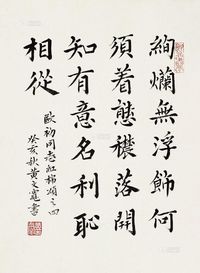 絢爛無浮飾何
須着態穠落開
知有意名利恥
相從
歐初同志紅棉頌之四
癸亥秋黃文寬書